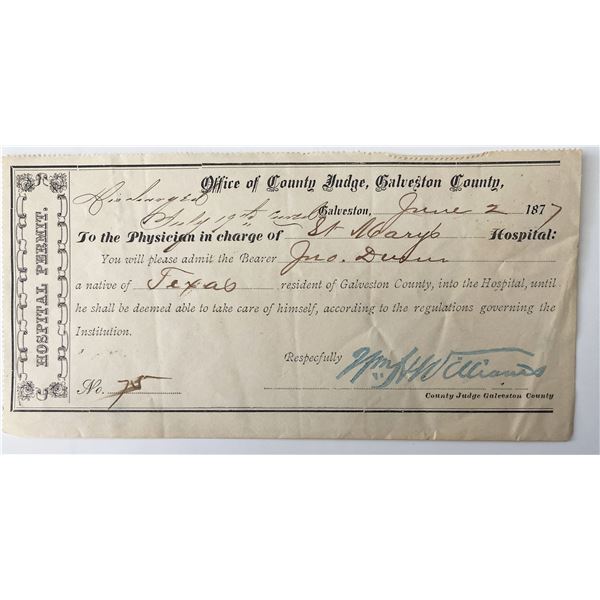 HOSPITAL PERMIT.
Office of County Judge, Galveston County,
Discharged
July 19th
Galveston, June 2 1877
To the Physician in charge of St Mary's Hospital:
You will please admit the Bearer Jno.
a native of Texas resident of Galveston County, into the Hospital, until
he shall be deemed able to take care of himself, according to the regulations governing the
Institution.
Respecfully Wm H Williams
No. 75
County Judge Galveston County